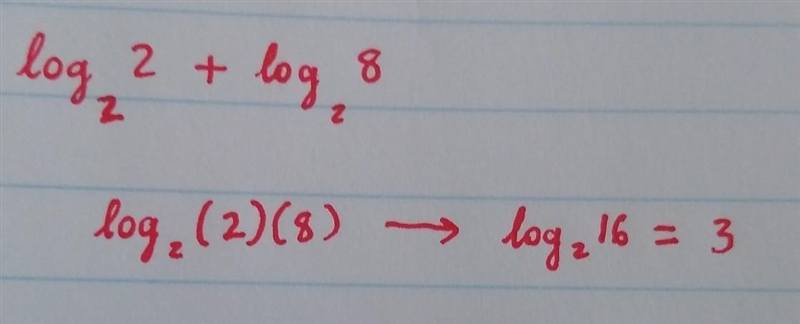 log₂ 2 + log₂ 8
log₂ (2)(8) → log₂ 16 = 3